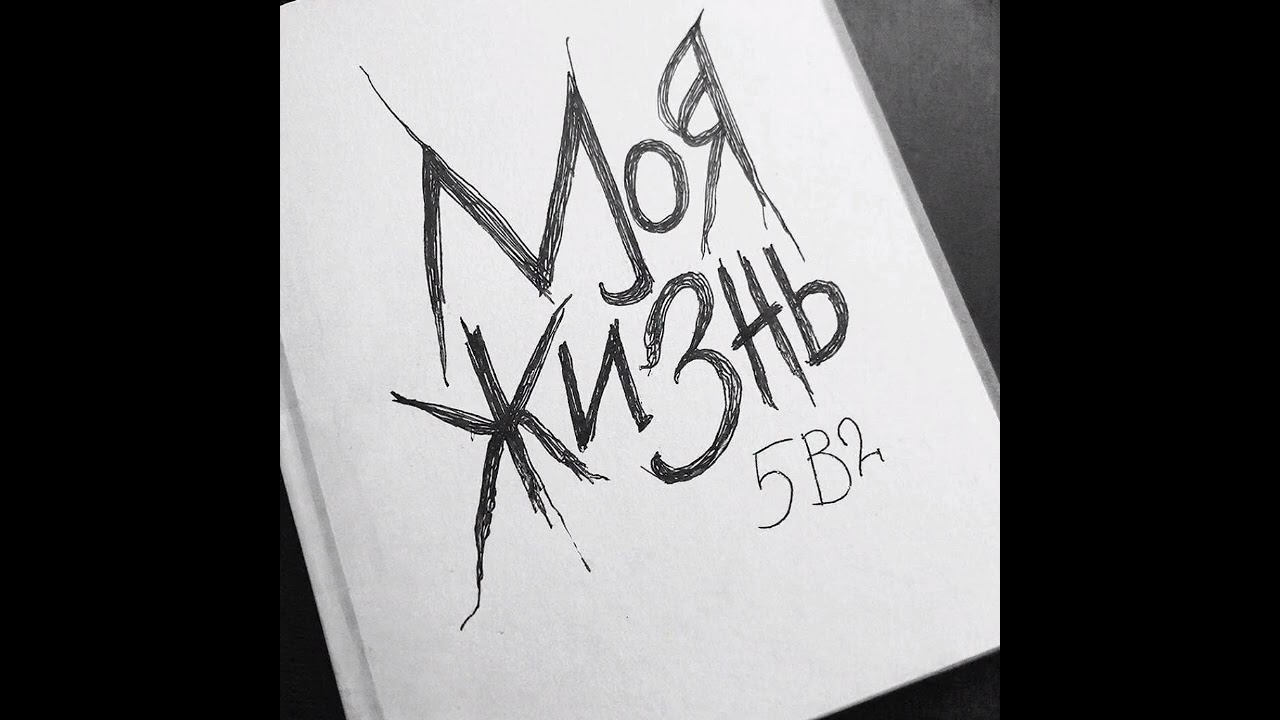 Моя
жизнь
5B2